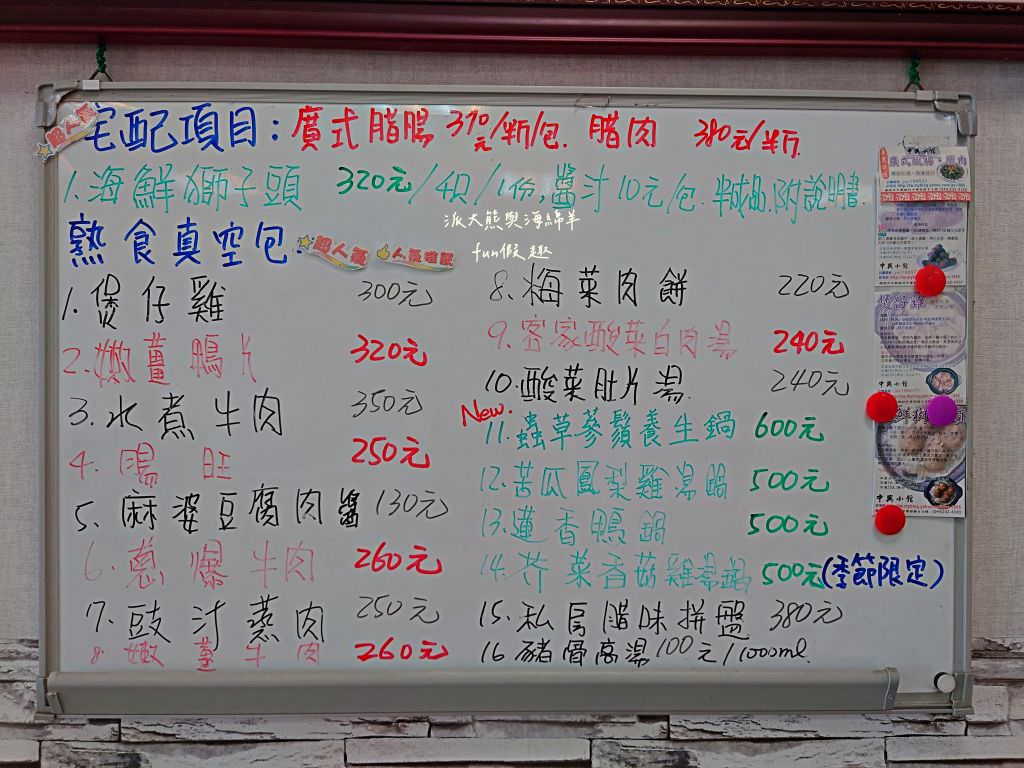 超人氣
宅配項目:廣式腊腸 370元/半斤/包. 腊肉 380元/半斤.
1.海鮮獅子頭 320元/4only/1份,醬汁10元/包.半成品.附說明書.
派大熊與海綿羊
fun假趣
熟食真空包. 超人氣 人氣推薦
1.煲仔雞 300元
2.嫩薑鴨片 320元
3.水煮牛肉 350元
4.腸旺 250元
5.麻婆豆腐肉醬 130元
6.蔥爆牛肉 260元
7.豉汁蒸肉 250元
8.嫩薑牛肉 260元
8.梅菜肉餅 220元
9.客家酸菜白肉湯 240元
10.酸菜肚片湯 240元
New.
11.蟲草蔘鬚養生鍋 600元
12.苦瓜鳳梨雞湯鍋 500元
13.蓮香鴨鍋 500元
14.芥菜香菇雞湯鍋 500元(季節限定)
15.私房腊味拼盤 380元
16 豬骨高湯100元/1000ml.
中興小館
中興小館
中興小館